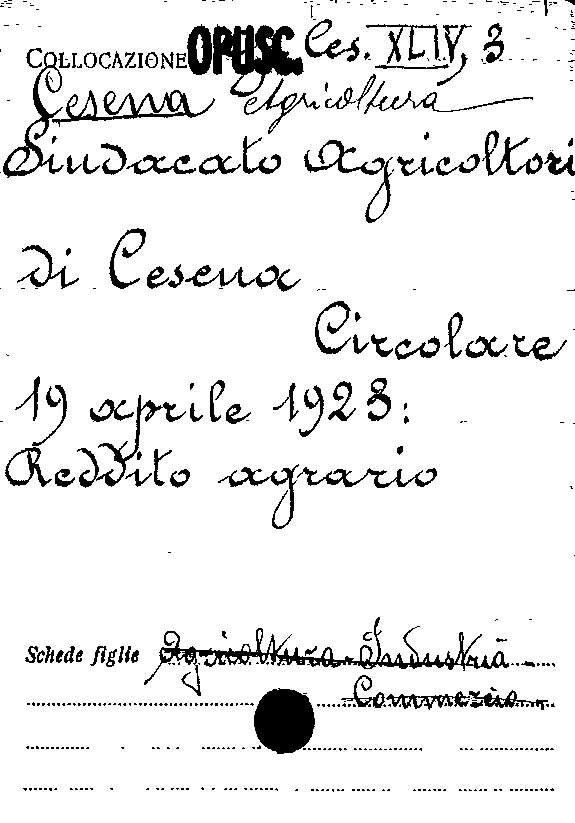 COLLOCAZIONE OPUSC. Ces. XLIV, 3
Cesena Agricoltura
Sindacato Agricoltori
di Cesena
Circolare
19 aprile 1923:
Reddito agrario
Schede figlie Agricoltura - Industria -
Commercio -